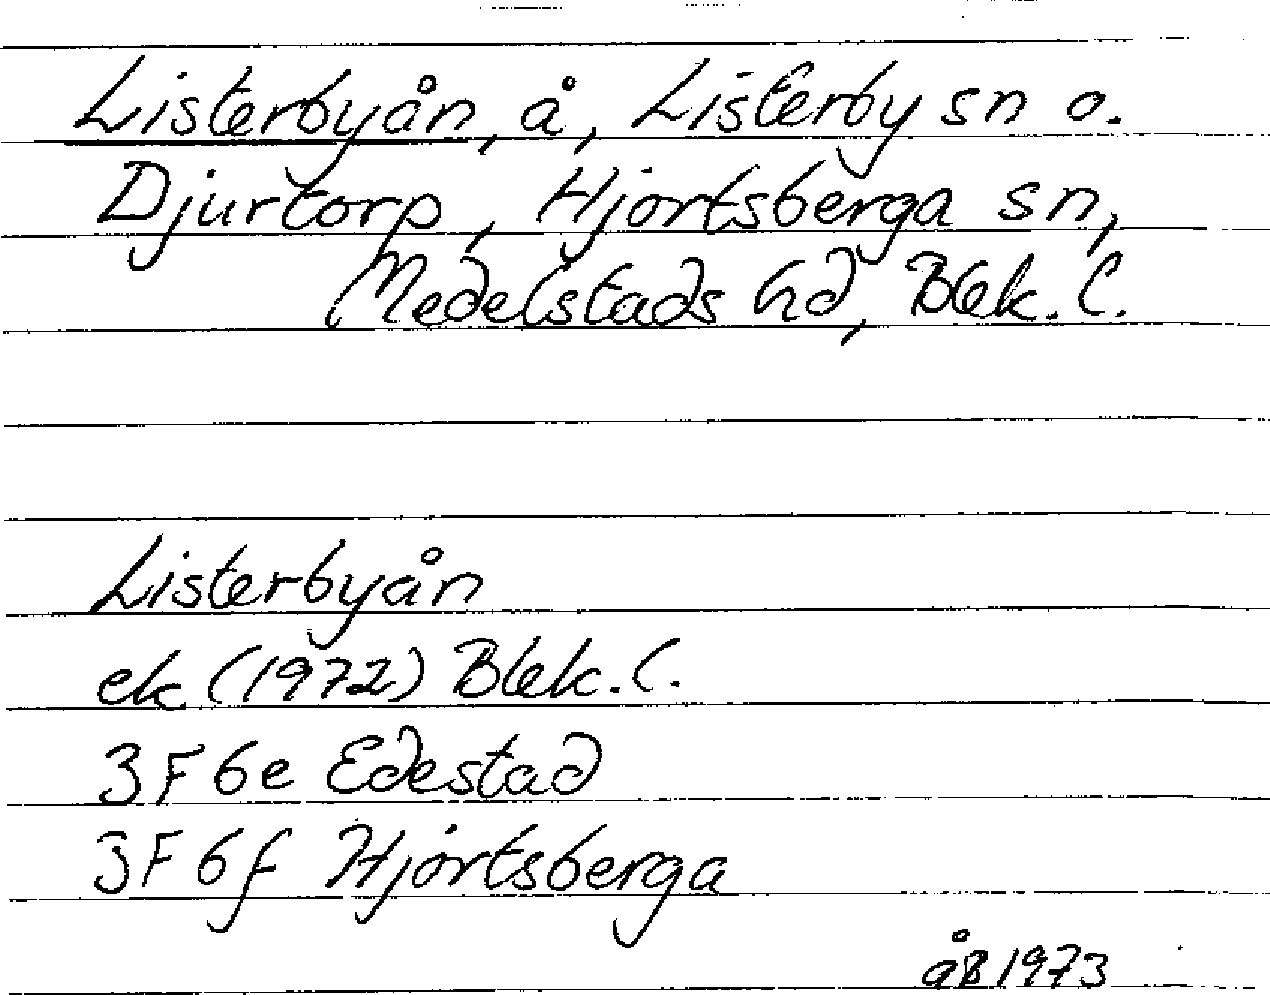 Listerbyån, å, Listerby sn o.
Djurtorp, Hjortsberga sn,
Medelstads hd, Blek. l.
Listerbyån
ek (1972) Blek. l.
3F 6e Edestad
3F 6f Hjortsberga
åB 1973